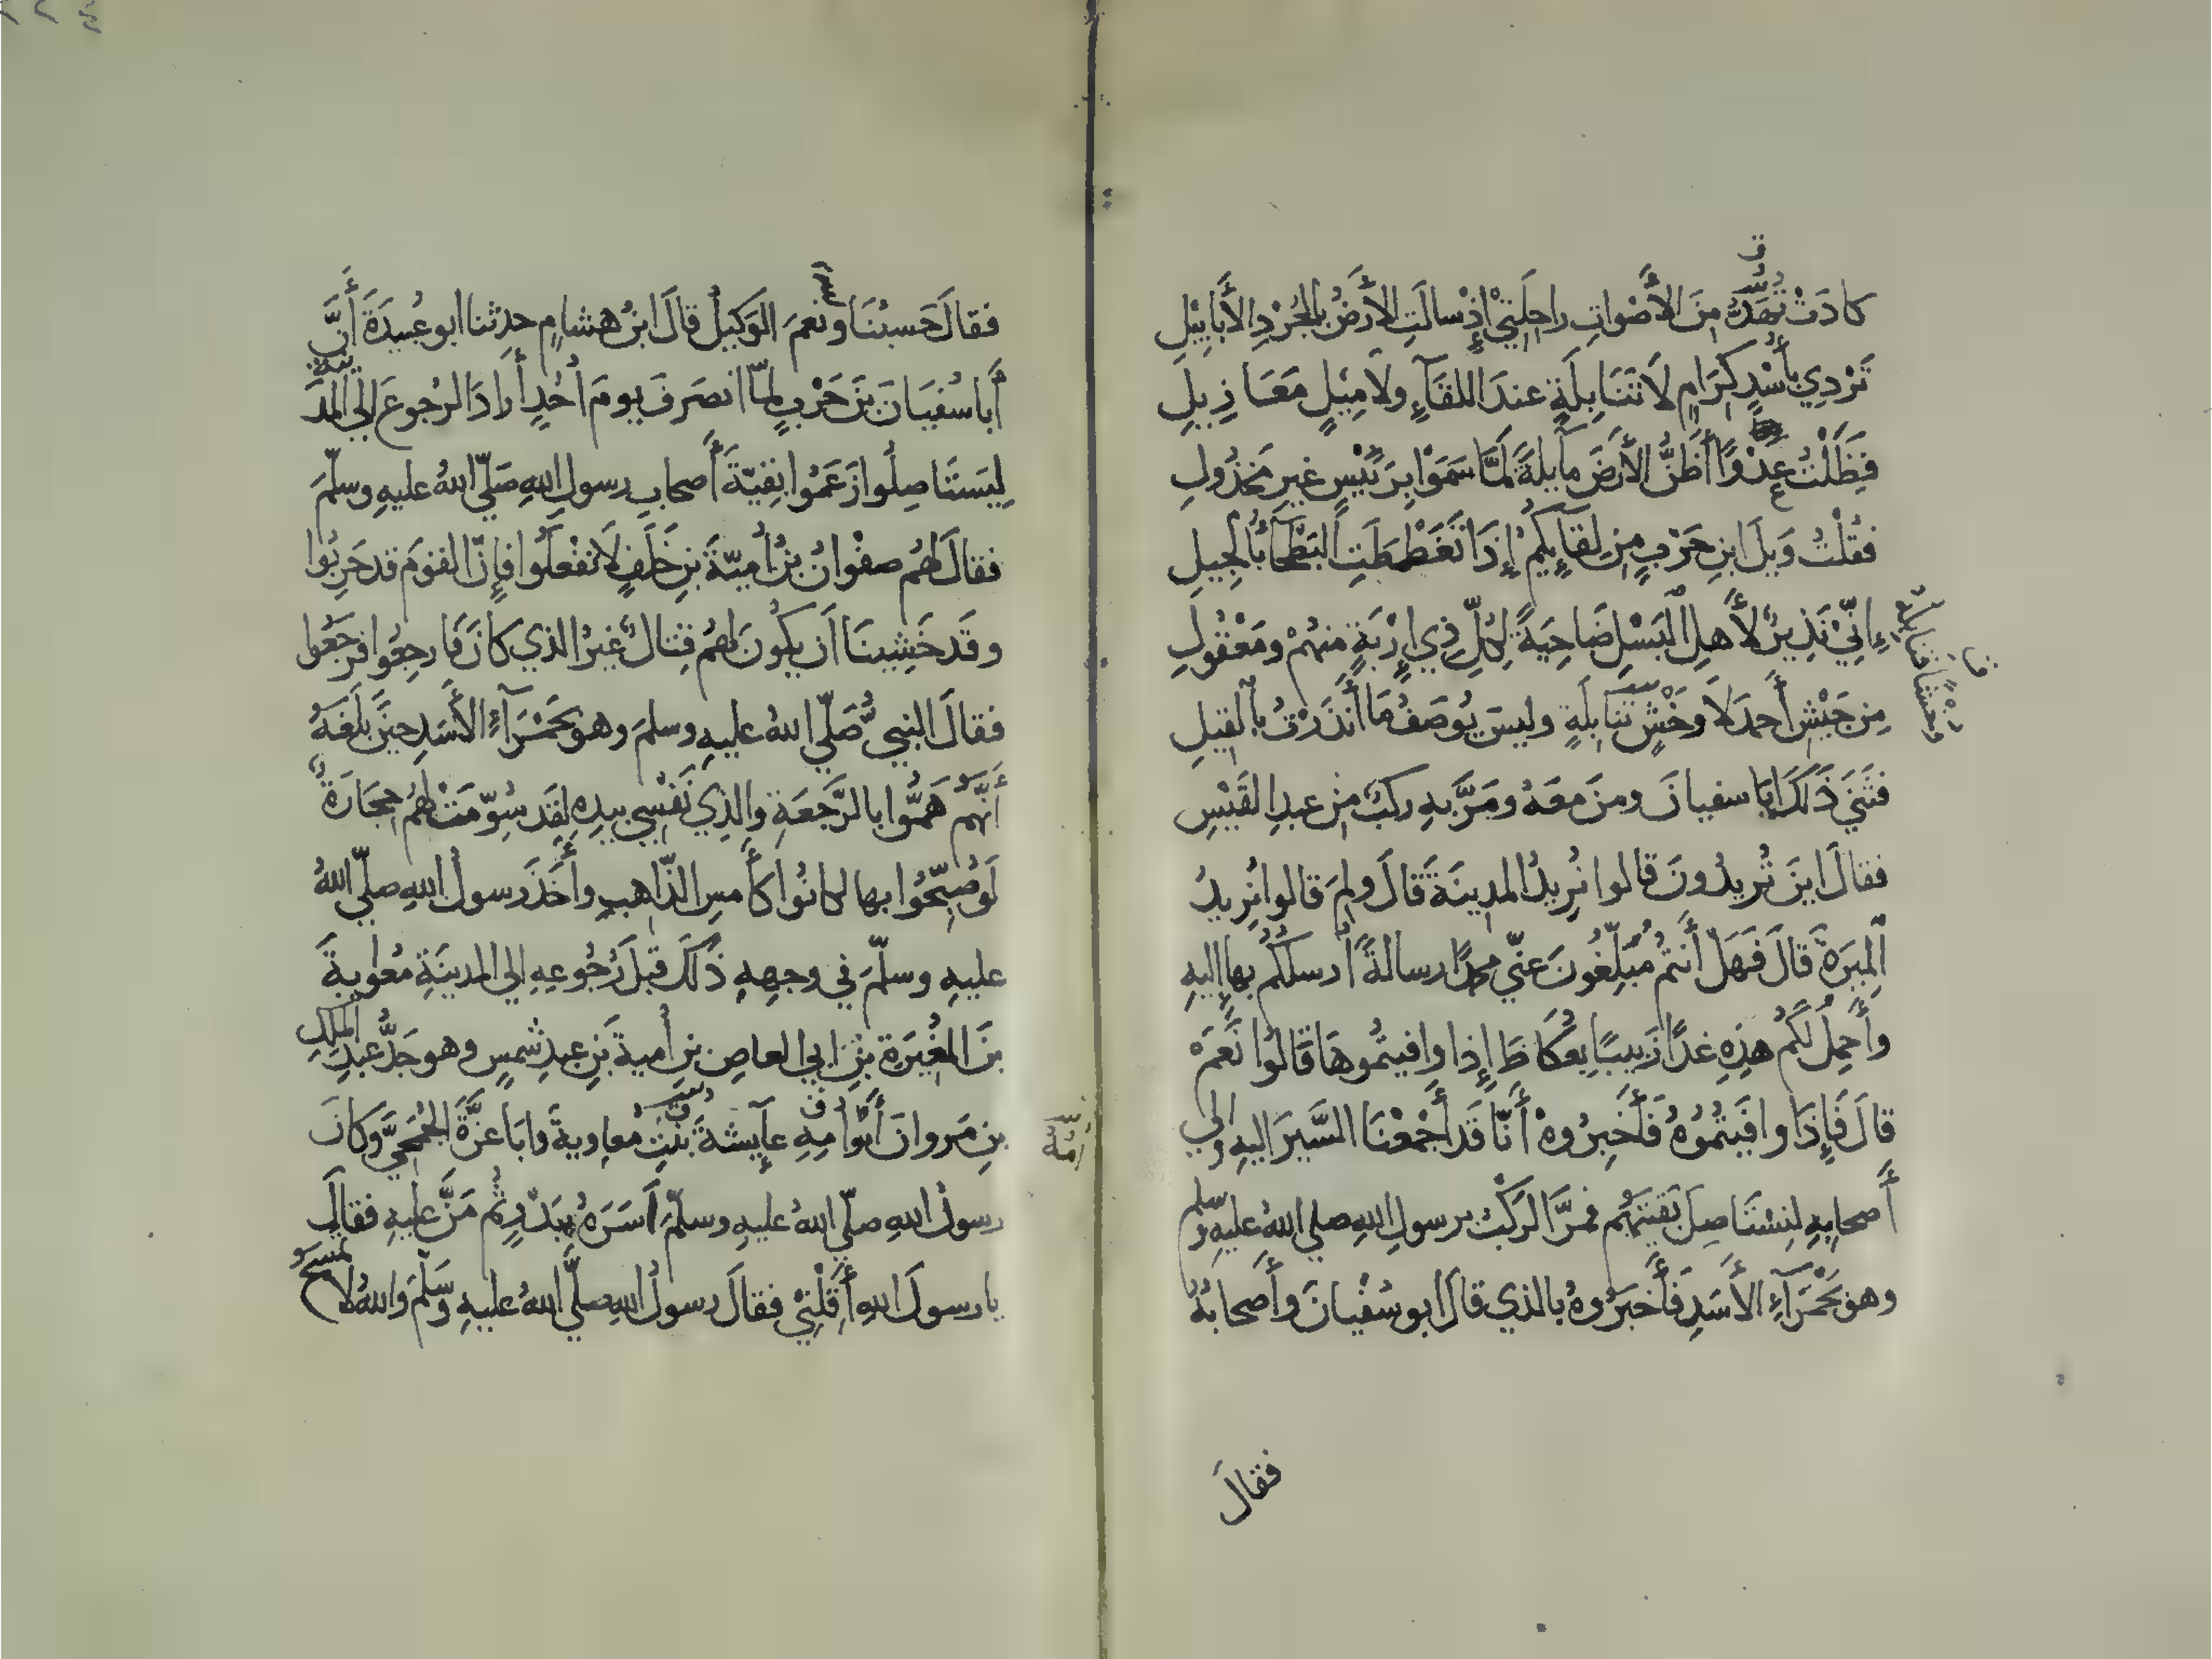 كادَتْ تُهَدُّ مِنَ الأَصْواتِ راحِلَتِيْ إِذْ سالَتِ الأَرْضُ بالجُرْدِ الأَبابِيْلِ
تَرْدِي بأُسْدٍ كِرَامٍ لَا تَنَابِلَةٍ عندَ اللقَآءِ ولا مِيْلٍ مَعَازِيلِ
فَظَلْتُ عَدْوًا أَظُنُّ الأَرضَ مآيِلَةً لَمَّا سَمَوْا برَئيْسٍ غيرِ مَخذُولِ
فقُلْتُ وَيلَ ابنِ حَرْبٍ مِن لِقآيِكُمُ إِذَا تَغَطْمَطَتِ البَطْحَآءُ بالجِيلِ
إِنِّيْ نَذِيرٌ لأَهلِ البَسْلِ ضَاحِيَةً لِكُلِّ ذِي إِرْبَةٍ منهُمْ ومَعْقُولِ
مِن جَيْشِ أَحمدَ لَا وَخْشٍ تَنَابِلَةٍ وليسَ يُوصَفُ مَا أَنذَرْتُ بالقِيلِ
فثَنَى ذَلكَ ابَا سفيانَ ومنَ معَهُ ومَرَّ بهِ ركبٌ مِن عبدِ القَيْسِ
فقالَ اينَ تُريدُونَ قالوا نُرِيدُ المدينَةَ قَالَ ولِمَ قالوا نُرِيدُ
الْمِيرَةَ قَالَ فَهَلْ أَنتُم مُبَلِّغُونَ عنِّي محمدًا رسالةً أُرسلُكُم بها إِليهِ
وأَحمِلُ لَكُم هذِهِ غدًا زَبيبًا بعُكَاظَ إِذا وافيتُموهَا قَالُوا نَعَمْ
قالَ فَإِذَا وافَيتُمُوهُ فَأَخبِرُوهْ أَنَّا قَد أَجْمَعْنَا السَّيرَ اليهِ وإلى
أَصحابِهِ لِنستَاصِلَ بَقيَّتَهُم فمرَّ الرَكْبُ برسولِ اللهِ صلى اللهُ عليهِ وسلم
وهوَ بحَمْرَآءِ الأَسَدِ فَأَخبَرُوهُ بالذي قالَ ابو سُفْيانَ وأَصحابُهُ
فقالَ
فقالَ حَسبُنَا ونعمَ الوَكيلُ قالَ ابنُ هشامٍ حدثنا ابو عُبيدَةَ أَنَّ
أَبا سُفيَانَ بنَ حَرْبٍ لمّا انصَرفَ يومَ أُحُدٍ أَرادَ الرُجوعَ إلى المدينة
لِيَستَاصِلُوا زَعَمُوا بقِيّةَ أَصحابِ رسولِ اللهِ صَلّى اللهُ عليهِ وسلّمَ
فقالَ لهُم صفْوانُ بنُ أُميّةَ بنِ خَلَفٍ لَا تفْعَلُوا فإِنَّ القومَ قد حَرِبُوا
وقَد خَشِينَا أَن يكُونَ لهُم قِتالٌ غيرُ الذي كانَ فارجِعُوا فرَجَعُوا
فقالَ النبيُّ صَلّى اللهُ عليهِ وسلمَ وهو بحَمْرَآءِ الأَسَدِ حينَ بَلَغَهُ
أَنَّهُم هَمُّوا بالرَّجعَةِ والذِي نَفْسِي بيدِهِ لقَد سُوِّمَتْ لهُم حِجَارَةٌ
لَو صُبِّحُوا بها لكانُوا كأَمسِ الذّاهبِ وأَخَذَ رسولُ اللهِ صلّى اللهُ
عليهِ وسلّمَ في وجهِهِ ذَلكَ قبلَ رُجُوعِهِ إلى المدينَةِ مُعاويةَ
بنَ المُغِيرَةِ بنِ ابي العاصِ بنِ أُميةَ بنِ عبدِ شمسٍ وهو جَدُّ عبدِ الملكِ
بنِ مَروانَ أَبُو أُمِهِ عآيشةَ بنتِ مُعاويةَ وابَا عَزَّةَ الجُمَحِيَّ وكانَ
رسولُ اللهِ صلّى اللهُ عليهِ وسلّمَ أَسَرَهُ ببَدْرٍ ثُم مَنَّ عليهِ فقالَ
يا رسولَ اللهِ أَقِلْنِيْ فقالَ رسولُ اللهِ صلَّى اللهُ عليهِ وسَلّمَ واللهِ لا تمسَحُ